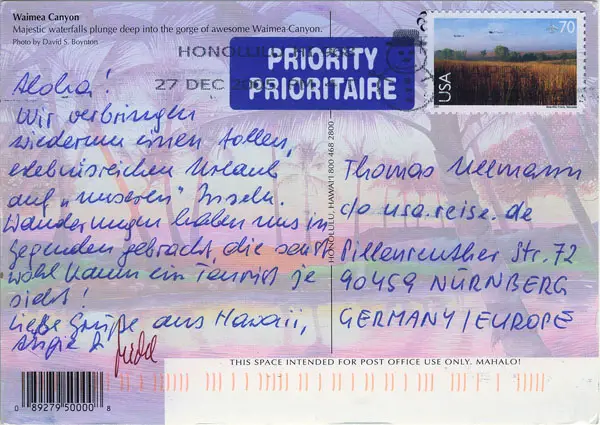 Waimea Canyon
Majestic waterfalls plunge deep into the gorge of awesome Waimea Canyon.
Photo by David S. Boynton
HONOLULU, HI
27 DEC 2005 PM
PRIORITY
PRIORITAIRE
USA
70
Aloha!
Wir verbringen
wiederum einen tollen,
erlebnisreichen Urlaub
auf „unseren" Inseln.
Wanderungen haben uns in
Gegenden gebracht, die sonst
wohl kaum ein Tourist je
sieht!
Liebe Grüße aus Hawaii,
Angie &
HONOLULU, HAWAI'I 800 468 2800
Thomas
c/o usa.reise.de
Pillenreuther Str. 72
90459 NÜRNBERG
GERMANY/EUROPE
THIS SPACE INTENDED FOR POST OFFICE USE ONLY. MAHALO!
0 89279 50000 8